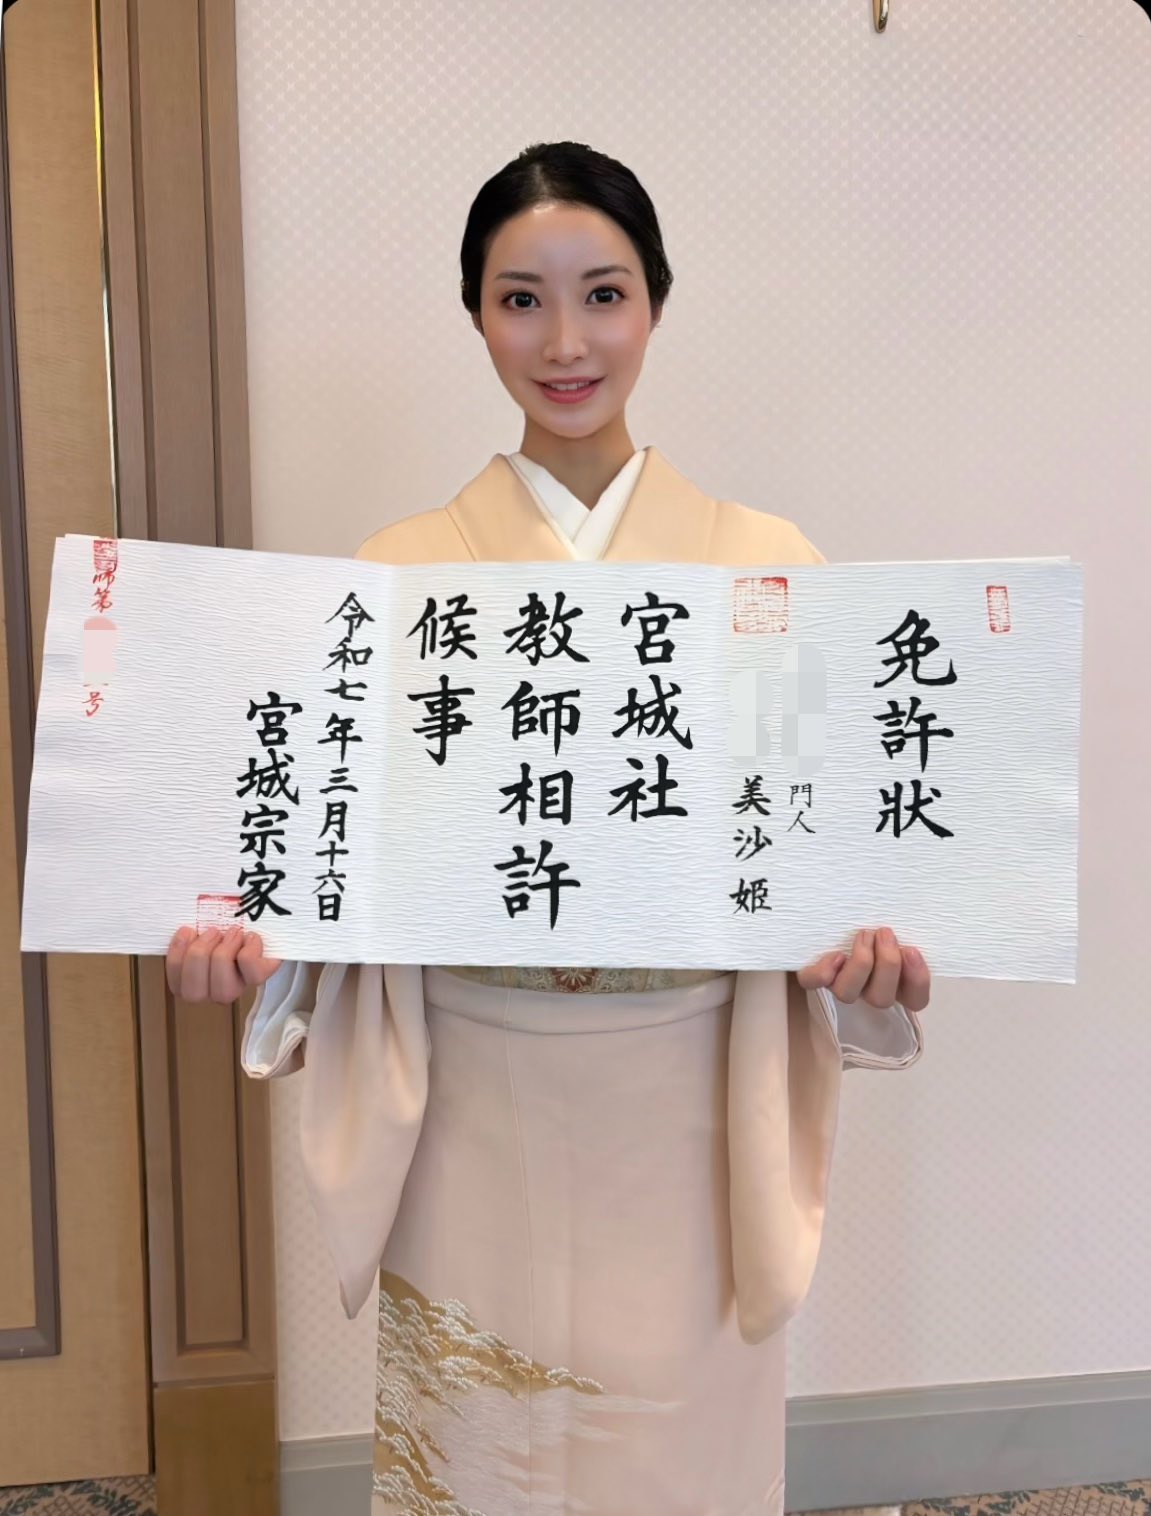 免許狀
門人
美沙姫
宮城社
教師相許
候事
令和七年三月十六日
宮城宗家
師第
号